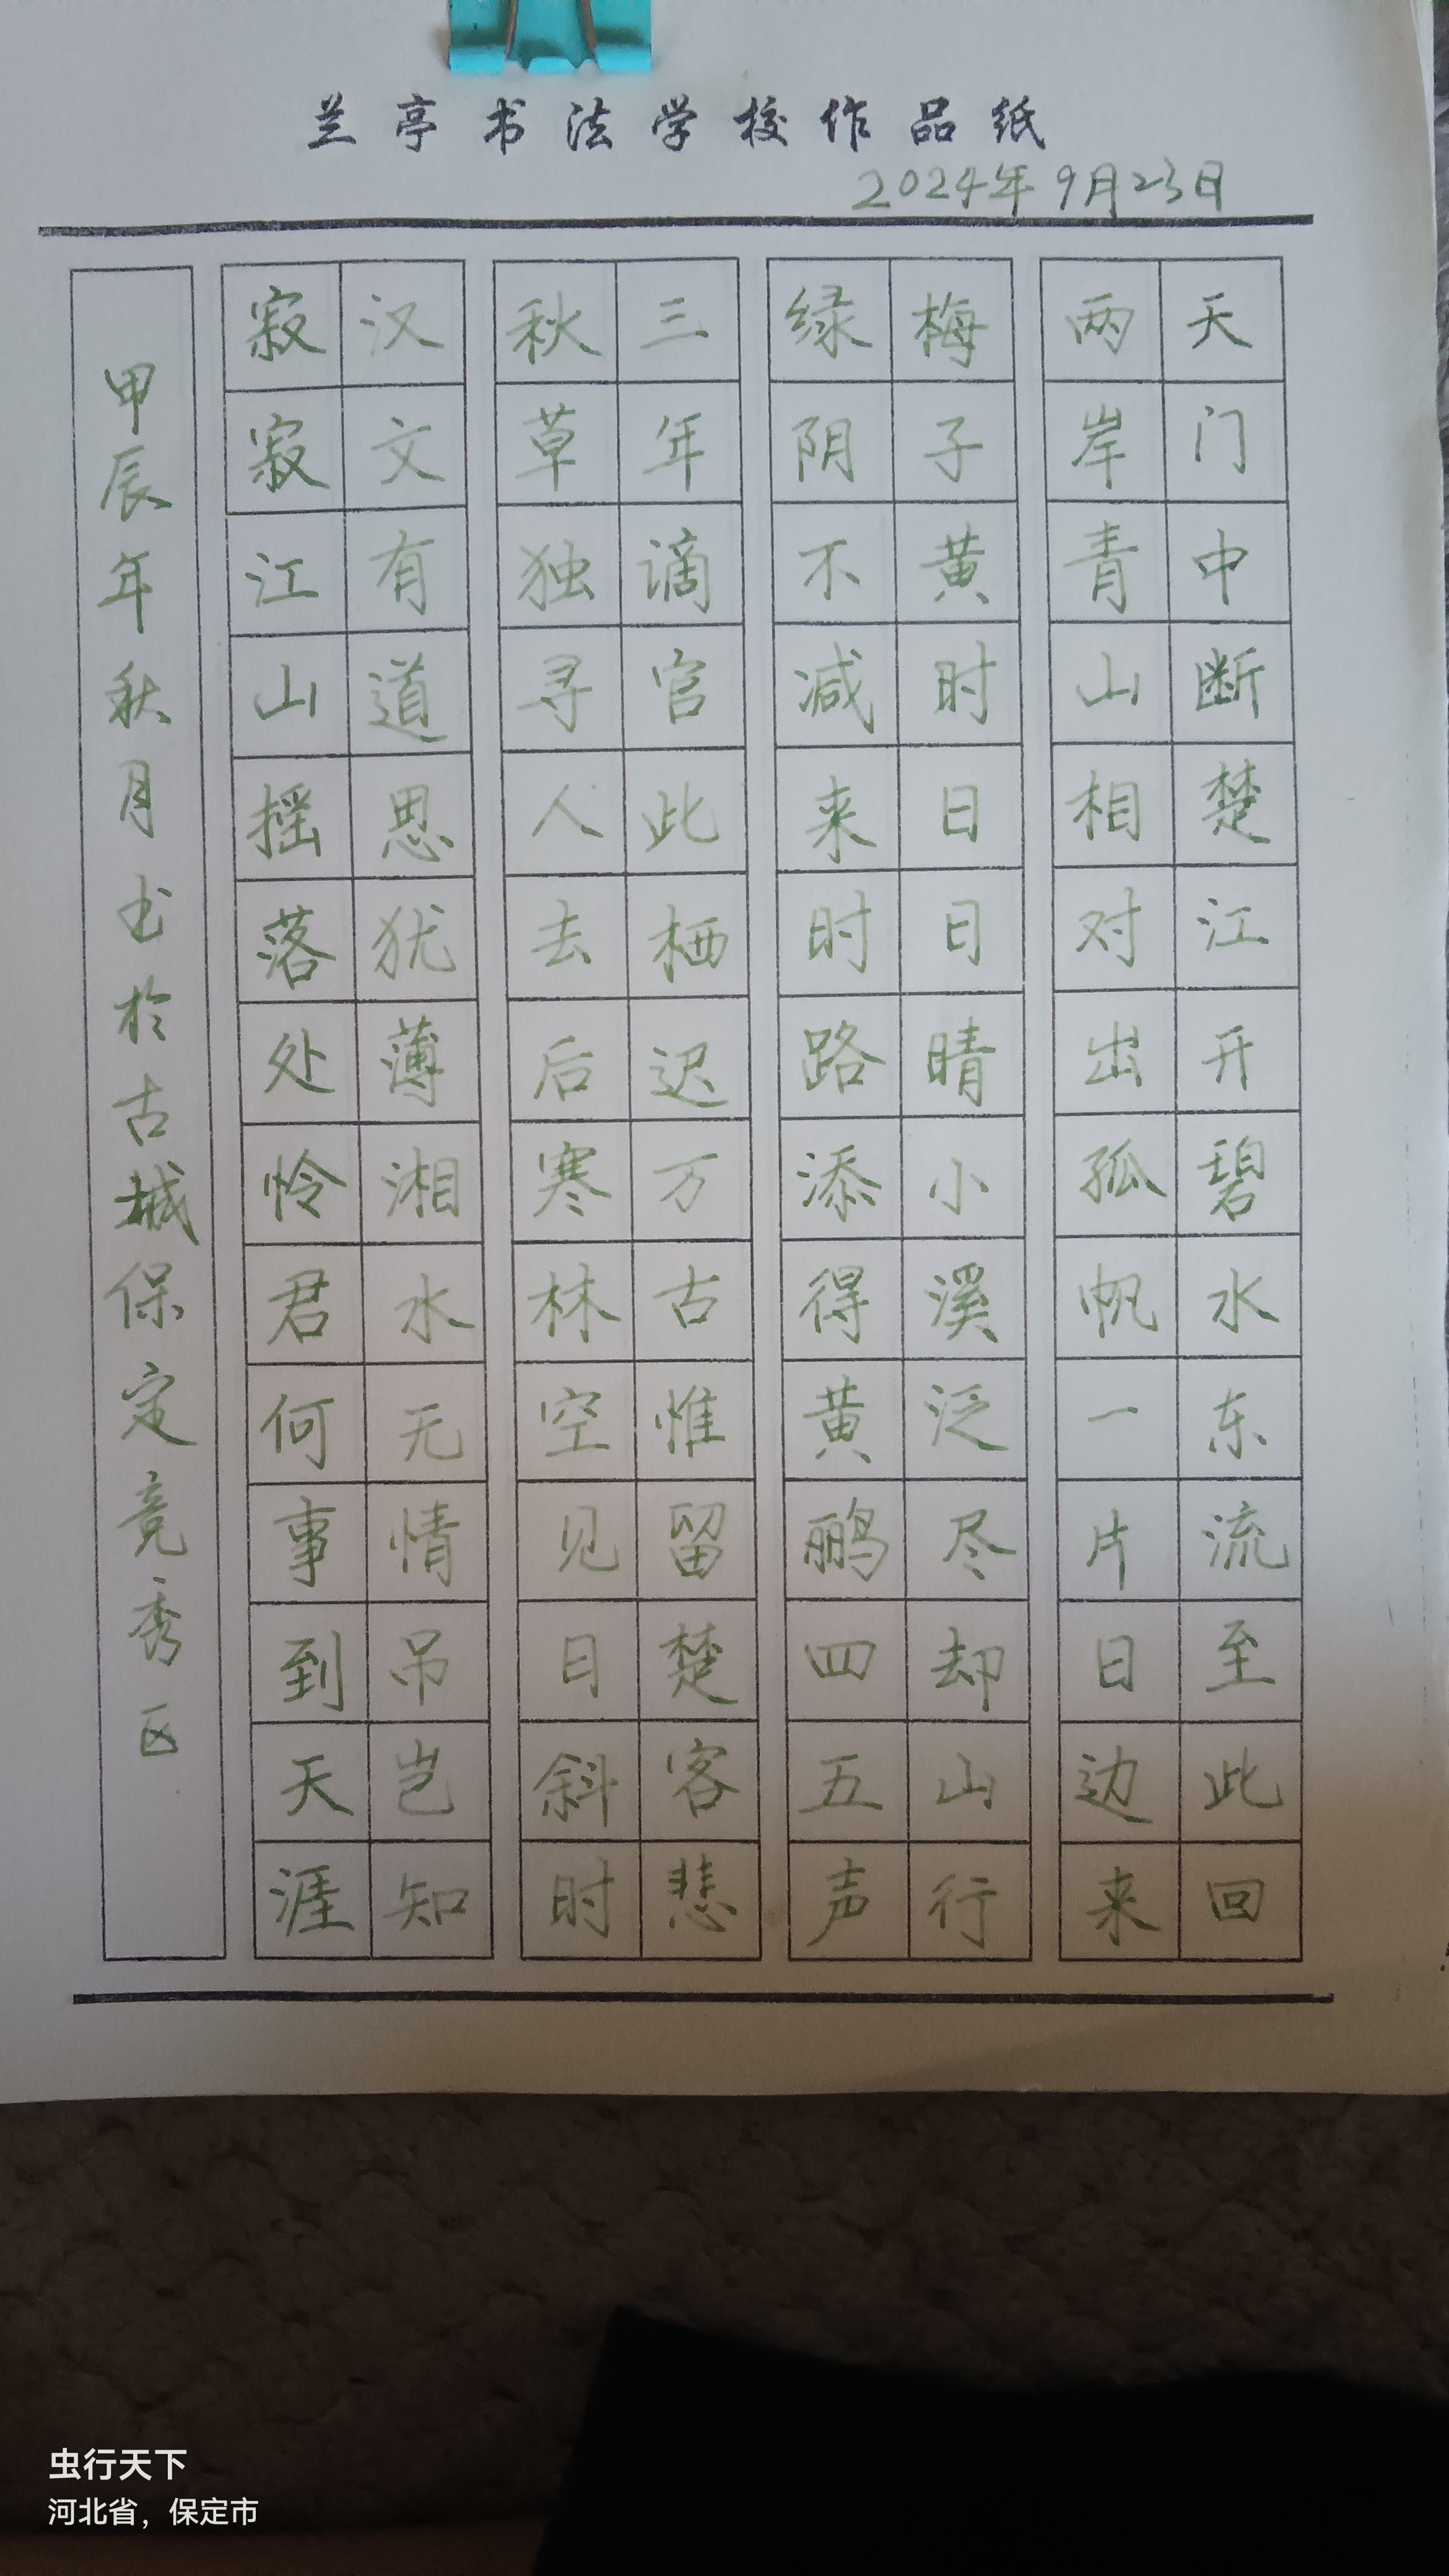 兰亭书法学校作品纸
2024年9月23日
天门中断楚江开碧水东流至此回
两岸青山相对出孤帆一片日边来
梅子黄时日日晴小溪泛尽却山行
绿阴不减来时路添得黄鹂四五声
三年谪官此栖迟万古惟留楚客悲
秋草独寻人去后寒林空见日斜时
汉文有道恩犹薄湘水无情吊岂知
寂寂江山摇落处怜君何事到天涯
甲辰年秋月书於古城保定竞秀区
虫行天下
河北省，保定市